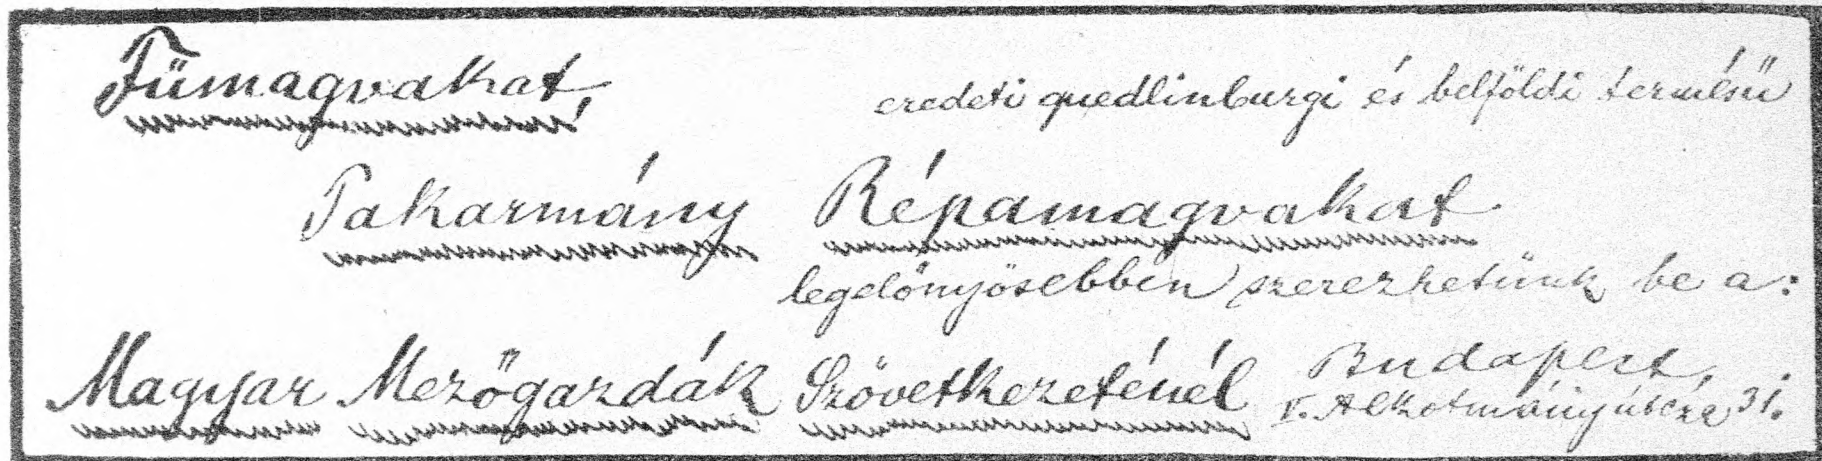 Fűmagvakat, eredeti quedlinburgi és belföldi termésű
Takarmány Répamagvakat
legelőnyösebben szerezhetünk be a:
Magyar Mezőgazdák Szövetkezeténél Budapest,
V. Alkotmányútcza 31.